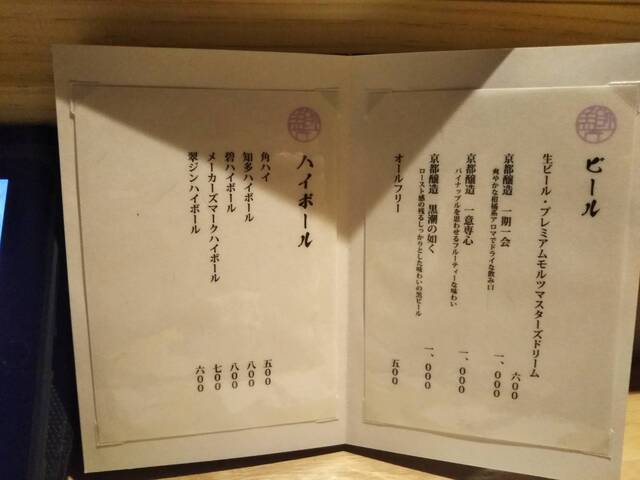 ビール
生ビール・プレミアムモルツマスターズドリーム 六00
京都醸造 一期一会 一、000
爽やかな柑橘系アロマでドライな飲み口
京都醸造 一意専心 一、000
パイナップルを思わせるフルーティーな味わい
京都醸造 黒潮の如く 一、000
ロースト感の残るしっかりとした味わいの黒ビール
オールフリー 五00
ハイボール
角ハイ 五00
知多ハイボール 八00
碧ハイボール 八00
メーカーズマークハイボール 七00
翠ジンハイボール 六00